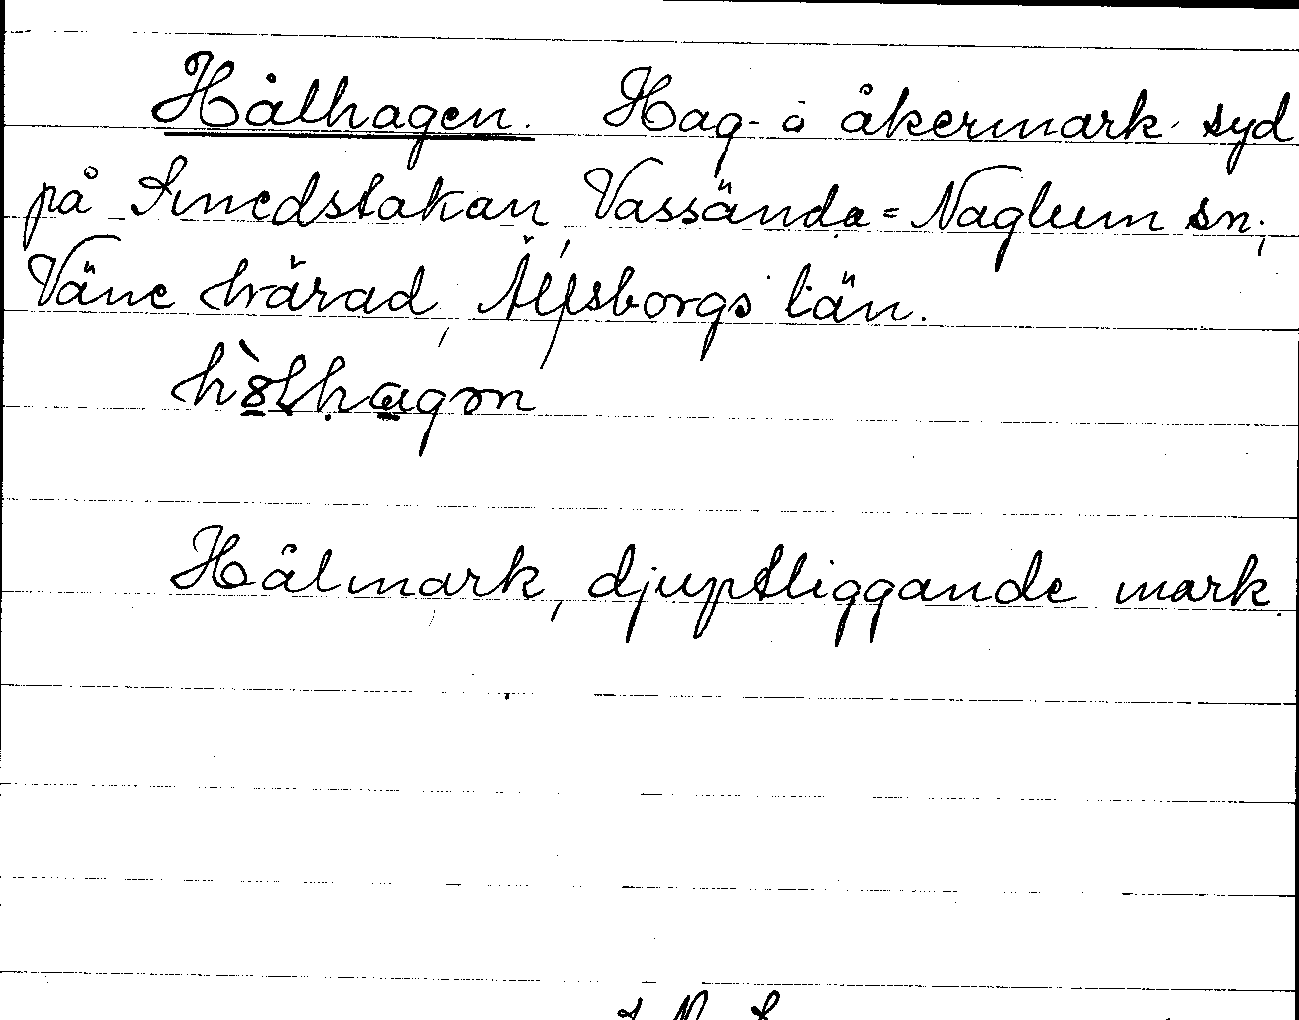 Hålhagen. Hag- o åkermark syd
på Smedstakan, Vassända=Naglum sn,
Väne härad, Älfsborgs län.
Hålmark, djuptliggande mark.